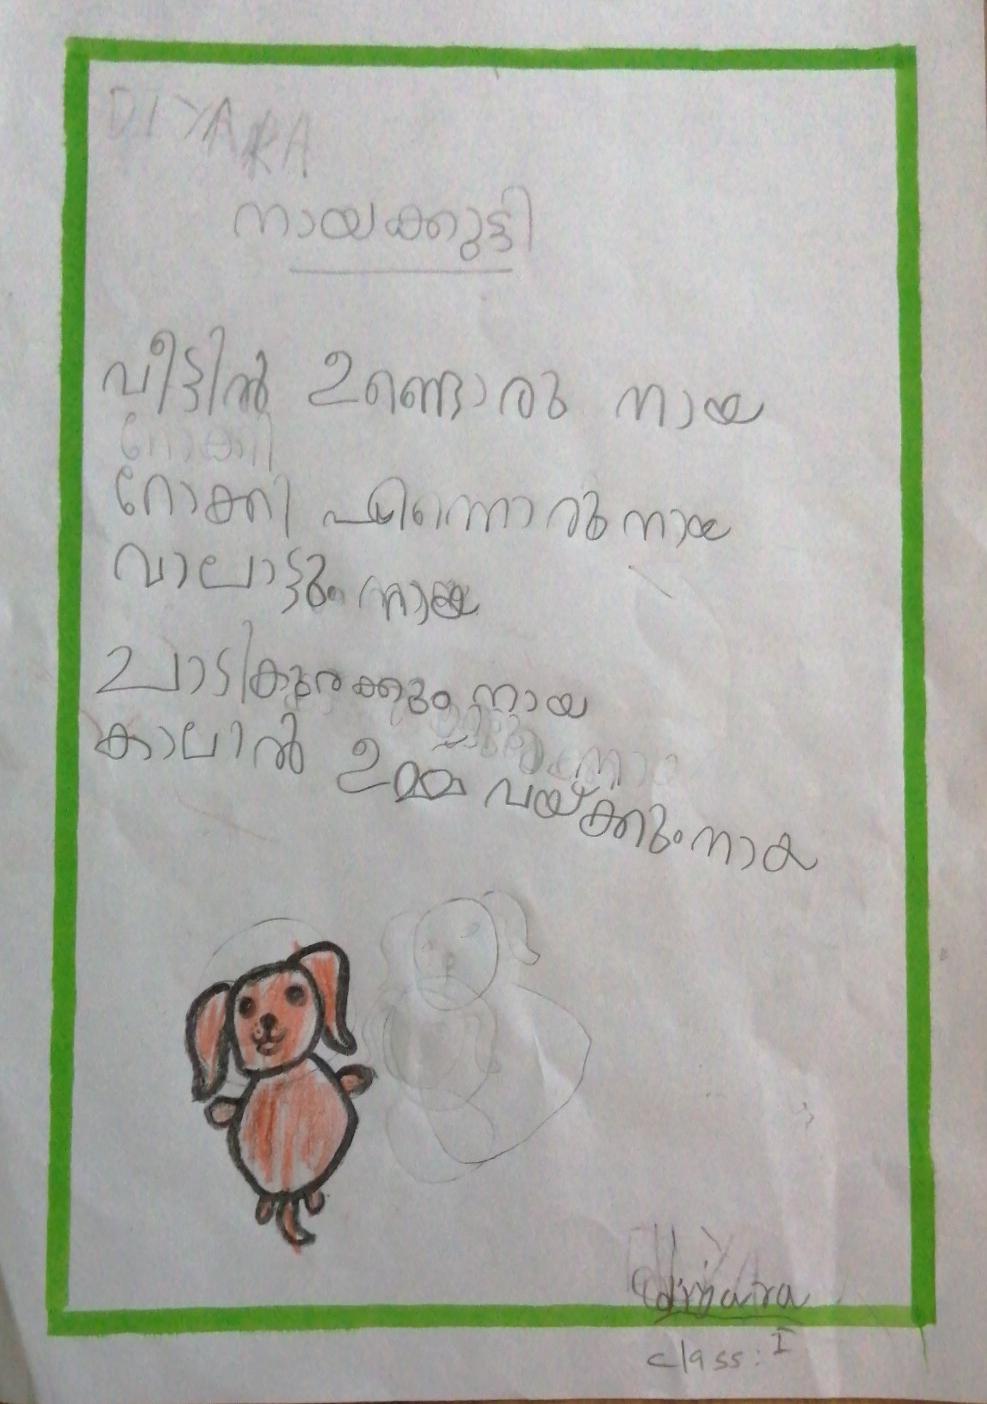 DIYARA
നായക്കുട്ടി
വീട്ടിൽ ഉണ്ടൊരു നായ
റോക്കി
റോക്കി എന്നൊരു നായ
വാലാട്ടും നായ
ചാടികുരക്കും നായ
കാലിൽ ഉമ്മ വയ്ക്കും നായ
diyara
class: I